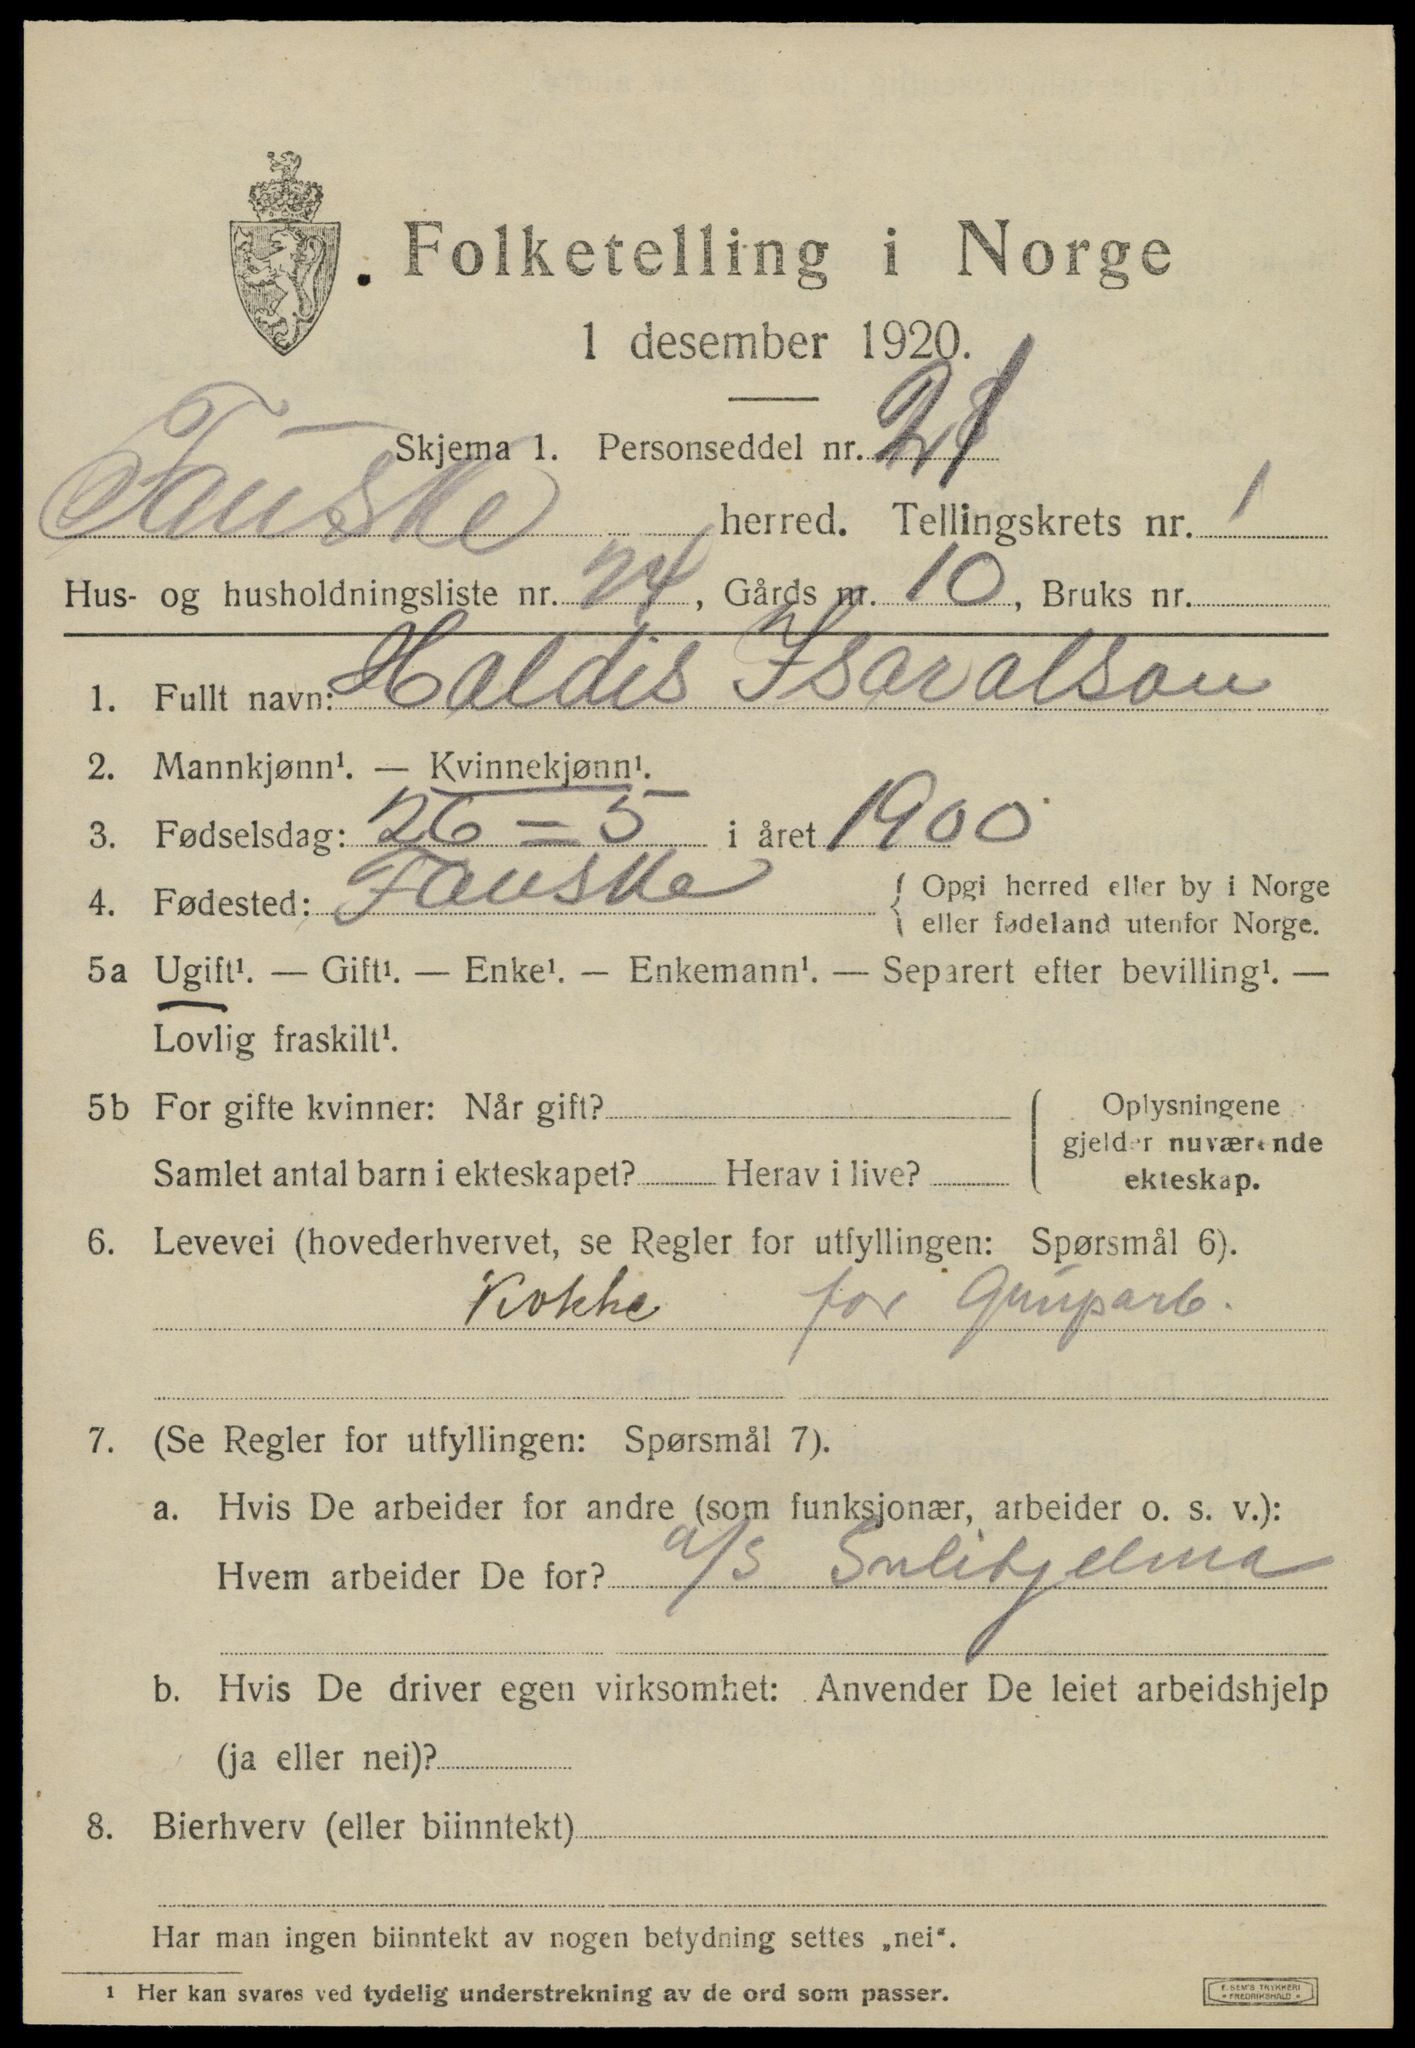 Folketelling i Norge
1 desember 1920.
Skjema 1. Personseddel nr. 21
Fauske herred. Tellingskrets nr. 1
Hus- og husholdningsliste nr. 24, Gårds nr. 10, Bruks nr.
1. Fullt navn: Haldis
2. Mannkjønn¹. — Kvinnekjønn¹.
3. Fødselsdag: 26 = 5 i året 1900
4. Fødested: Fauske { Opgi herred eller by i Norge
eller fødeland utenfor Norge.
5a Ugift¹. — Gift¹. — Enke¹. — Enkemann¹. — Separert efter bevilling¹. —
Lovlig fraskilt¹.
5b For gifte kvinner: Når gift?
Samlet antal barn i ekteskapet? Herav i live?
Oplysningene
gjelder nuværende
ekteskap.
6. Levevei (hovederhvervet, se Regler for utfyllingen: Spørsmål 6).
Kokke for
7. (Se Regler for utfyllingen: Spørsmål 7).
a. Hvis De arbeider for andre (som funksjonær, arbeider o. s. v.):
Hvem arbeider De for? a/s Sulitjelma
b. Hvis De driver egen virksomhet: Anvender De leiet arbeidshjelp
(ja eller nei)?
8. Bierhverv (eller biinntekt)
Har man ingen biinntekt av nogen betydning settes „nei“.
¹ Her kan svares ved tydelig understrekning av de ord som passer.
F. SEM'S TRYKKERI
• FREDRIKSHALD •